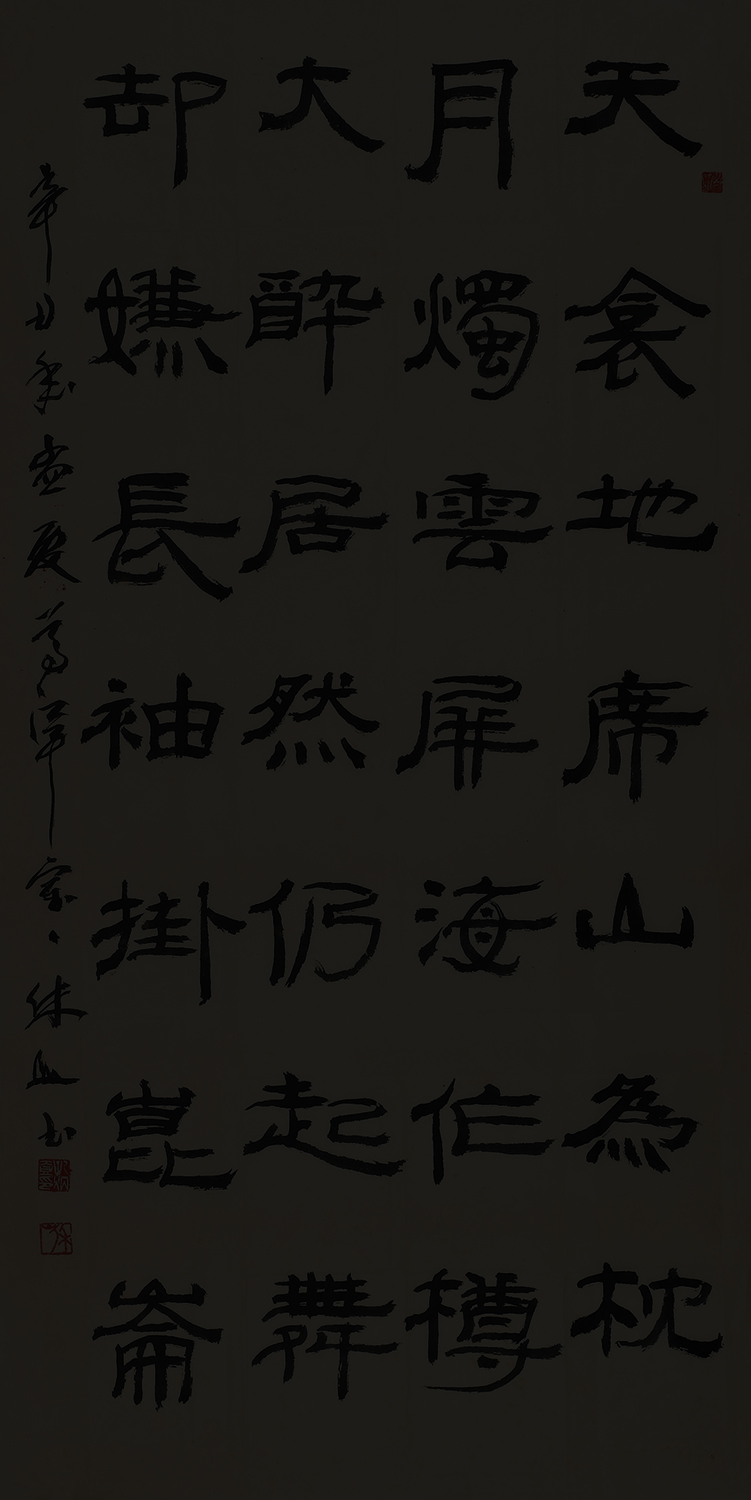 天衾地席山為枕
月燭雲屏海作樽
大醉居然仍起舞
却嫌長袖掛崑崙
辛丑年孟夏
書